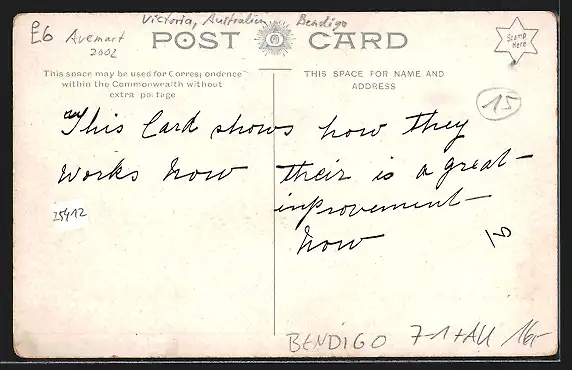 Victoria, Australien Bendigo
£6 Avemart
2002
POST CARD
Stamp
Here
This space may be used for Correspondence
within the Commonwealth without
extra postage
THIS SPACE FOR NAME AND
ADDRESS
15
This Card shows how they
works Now their is a great
inprovement
Now
25412
BENDIGO 7-1+AU 16,-